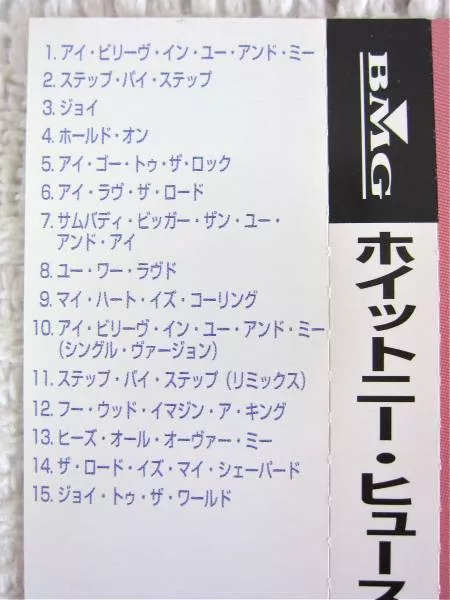 1. アイ・ビリーヴ・イン・ユー・アンド・ミー
2. ステップ・バイ・ステップ
3. ジョイ
4. ホールド・オン
5. アイ・ゴー・トゥ・ザ・ロック
6. アイ・ラヴ・ザ・ロード
7. サムバディ・ビッガー・ザン・ユー・
アンド・アイ
8. ユー・ワー・ラヴド
9. マイ・ハート・イズ・コーリング
10. アイ・ビリーヴ・イン・ユー・アンド・ミー
(シングル・ヴァージョン)
11. ステップ・バイ・ステップ (リミックス)
12. フー・ウッド・イマジン・ア・キング
13. ヒーズ・オール・オーヴァー・ミー
14. ザ・ロード・イズ・マイ・シェーパード
15. ジョイ・トゥ・ザ・ワールド
BMG
ホイットニー・ヒュース